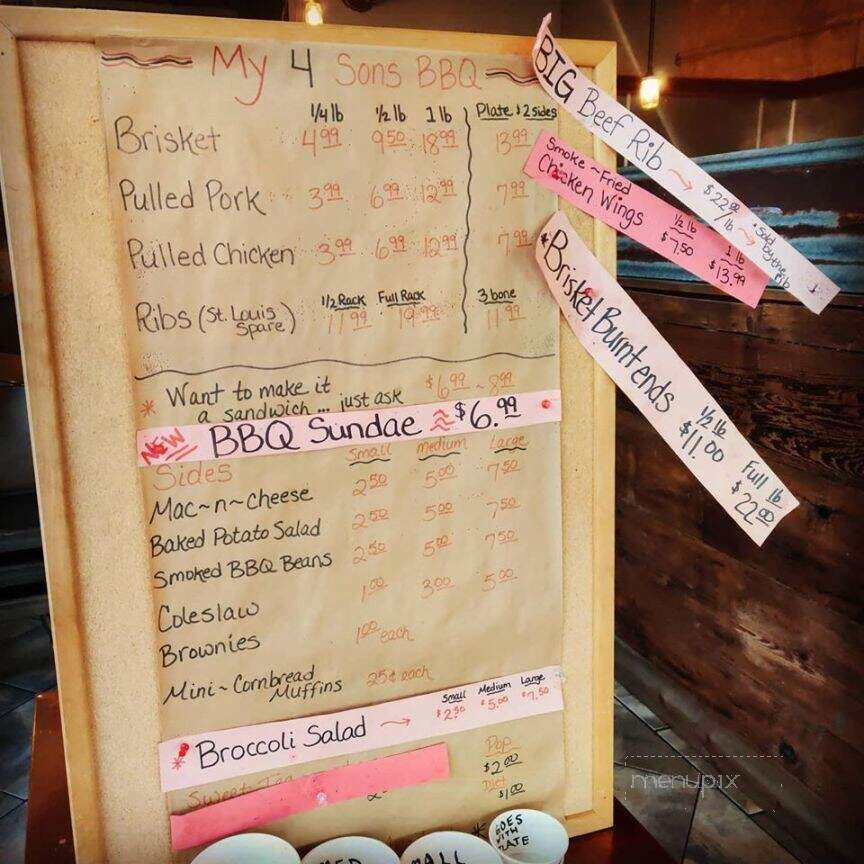 My 4 Sons BBQ
1/4 lb 1/2 lb 1 lb Plate & 2 sides
Brisket 4.99 9.50 18.99 13.99
Pulled Pork 3.99 6.99 12.99 7.99
Pulled Chicken 3.99 6.99 12.99 7.99
1/2 Rack Full Rack 3 bone
Ribs (St. Louis Spare) 11.99 19.99 11.99
* Want to make it
a sandwich... just ask $6.99 ~ 8.99
NEW BBQ Sundae ≈ $6.99
Sides Small Medium Large
Mac~n~Cheese 2.50 5.00 7.50
Baked Potato Salad 2.50 5.00 7.50
Smoked BBQ Beans 2.50 5.00 7.50
Coleslaw 1.00 3.00 5.00
Brownies 1.00 each
Mini~Cornbread Muffins 25¢ each
Small Medium Large
* Broccoli Salad → $2.50 $5.00 $7.50
Sweet
Pop
$2.00
Diet
$1.00
BIG Beef Rib → $22.00 /lb → *Sold by the Rib
Smoke~Fried
Chicken Wings 1/2 lb $7.50 1 lb $13.99
*Brisket Burnt ends 1/2 lb $11.00 Full lb $22.00
MED
*GOES
WITH
menupix